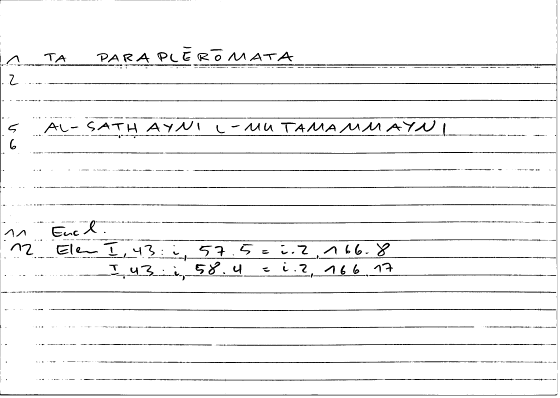 1 TA PARAPLĒRŌMATA
2
5 AL-SATḤAYNI L-MUTAMAMMAYNI
6
11 Eucl.
12 Elem I, 43 : i, 57.5 = i.2, 166.8
I, 43 : i, 58.4 = i.2, 166.17